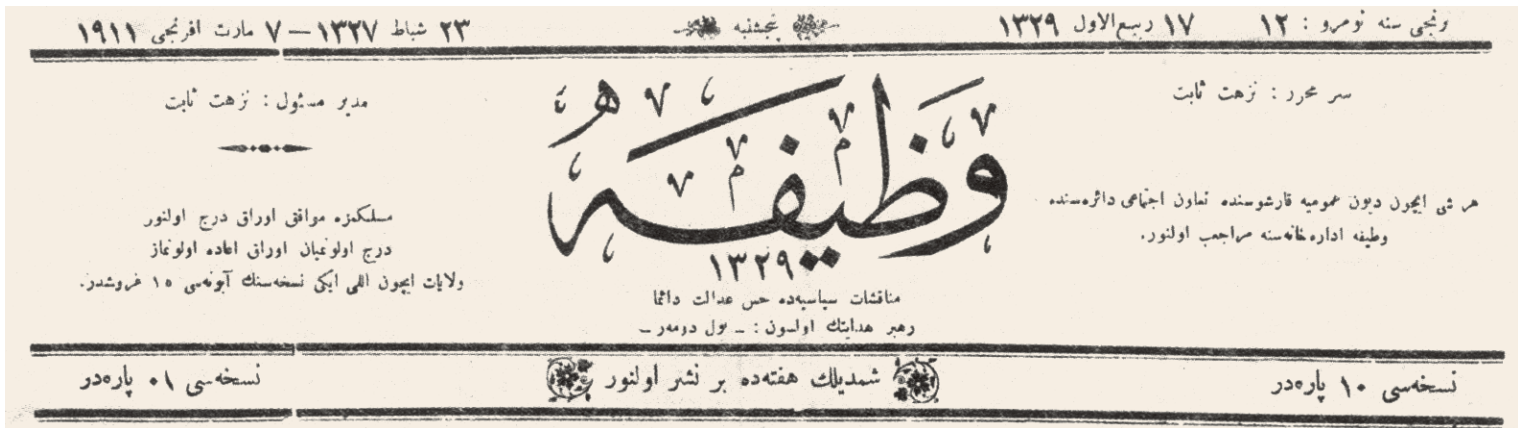 ونجی سنه نومرو : ١٢ ١٧ ربیع‌الاول ١٣٢٩ پنجشنبه ٢٣ شباط ١٣٢٧ — ٧ مارت افرنجی ١٩١١
سر محرر : نزهت ثابت
هر شی ایچون دیون عمومیه قارشوسنده تعاون اجتماعی دائره‌سنده
وظیفه اداره خانه‌سنه مراجعب اولنور.
وظیفه
١٣٢٩
مناقشات سیاسیه‌ده حس عدالت دائما
رهبر هدایتك اولسون : ـ پول دومه‌ر ـ
مدیر مسئول : نزهت ثابت
مسلكمزه موافق اوراق درج اولنور
درج اولونمیان اوراق اعاده اولونماز
ولایات ایچون اللی ایکی نسخه‌سنك آبونه‌سی ١٥ غروشدر.
نسخه‌سی ١٠ پاره‌در شمدیلك هفته‌ده بر نشر اولنور نسخه‌سی ٠١ پاره‌در